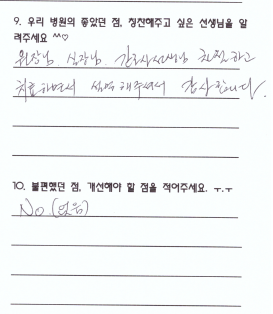 9. 우리 병원의 좋았던 점, 칭찬해주고 싶은 선생님을 알
려주세요 ^^♡
원장님, 실장님, 간호사선생님 친절하고
치료하면서 설명해주셔서 감사합니다.
10. 불편했던 점, 개선해야 할 점을 적어주세요. ㅜ.ㅜ
No.(없음)